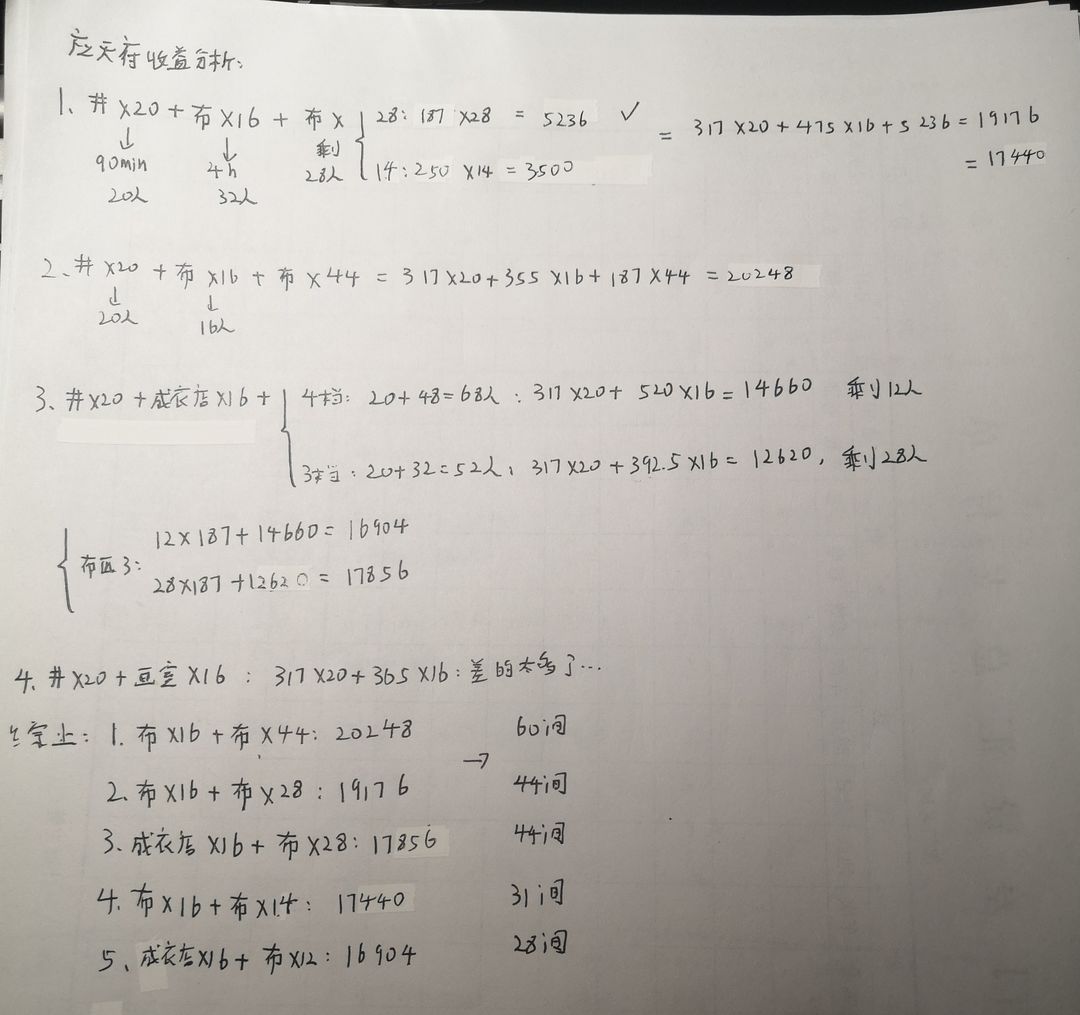 应天府收益分析:
1、井×20+布×16+布× { 28: 187×28 = 5236 ✓ = 317×20+475×16+5236=19176
↓ ↓ 剩
90min 4h 28人 14:250×14=3500 =17440
20人 32人
2、井×20+布×16+布×44=317×20+355×16+187×44=20248
↓ ↓
20人 16人
3、井×20+成衣店×16+ { 4档: 20+48=68人:317×20+520×16=14660 剩12人
3档:20+32=52人;317×20+392.5×16=12620,剩28人
{ 布匹3: 12×187+14660=16904
28×187+12620=17856
4、井×20+画室×16:317×20+365×16:差的太多了…
综上:1.布×16+布×44:20248 → 60间
2、布×16+布×28:19176 44间
3、成衣店×16+布×28:17856 44间
4、布×16+布×14:17440 31间
5、成衣店×16+布×12:16904 28间